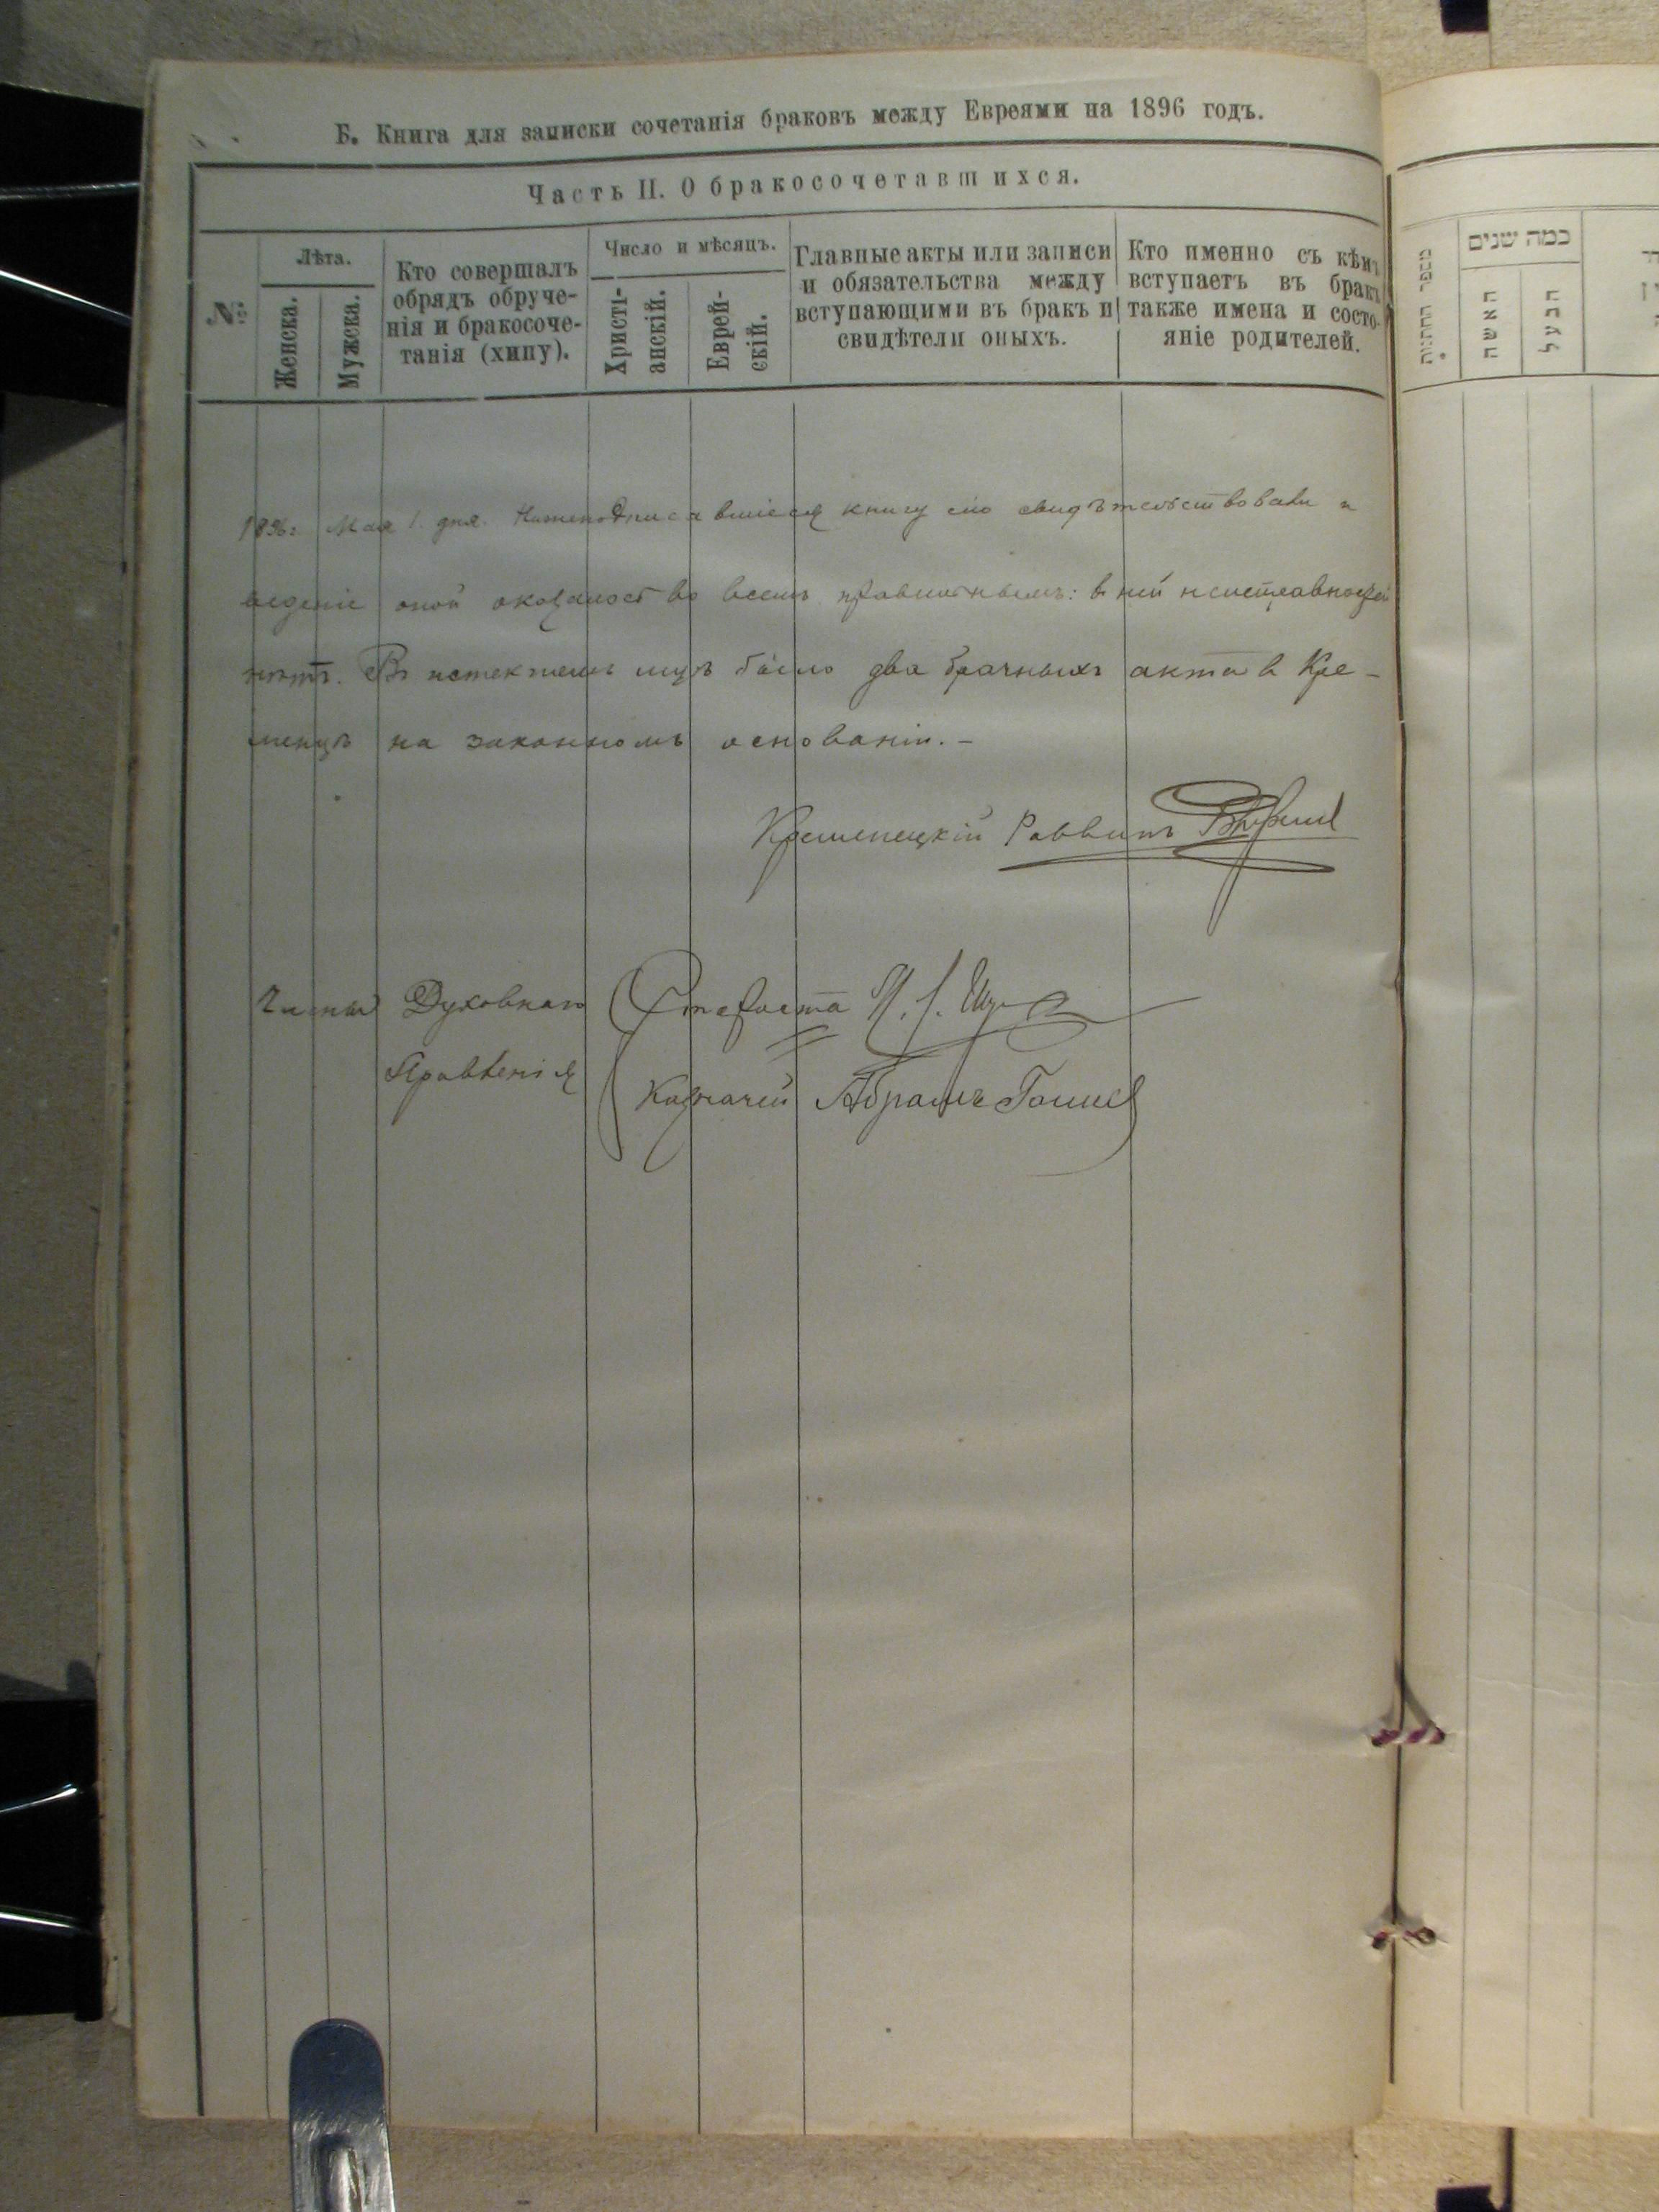 Б. Книга для записки сочетанія браковъ между Евреями на 1896 годъ.
Часть II. О бракосочетавшихся.
№
Лѣта.
Женска.
Мужска.
Кто совершалъ
обрядъ обруче-
нія и бракосоче-
танія (хипу).
Число и мѣсяцъ.
Христі-
анскій.
Еврей-
скій.
Главные акты или записи
и обязательства между
вступающими въ бракъ и
свидѣтели оныхъ.
Кто именно съ кѣмъ
вступаетъ въ бракъ
также имена и состо-
яніе родителей.
1896: Мая 1. дня. Нижеподписавшіеся книгу сію свидѣтельствовали и
веденіе оной оказалось во всемъ правильнымъ: в ней неисправностей
нѣтъ. Въ истекшемъ мцѣ было два брачныхъ акта в Кре-
менцѣ на законномъ основаніи. –
Кременецкій Раввинъ
Члены Духовнаго
Правленія
Староста
Казначей Абрамъ
כמה שנים
האשה
הבעל